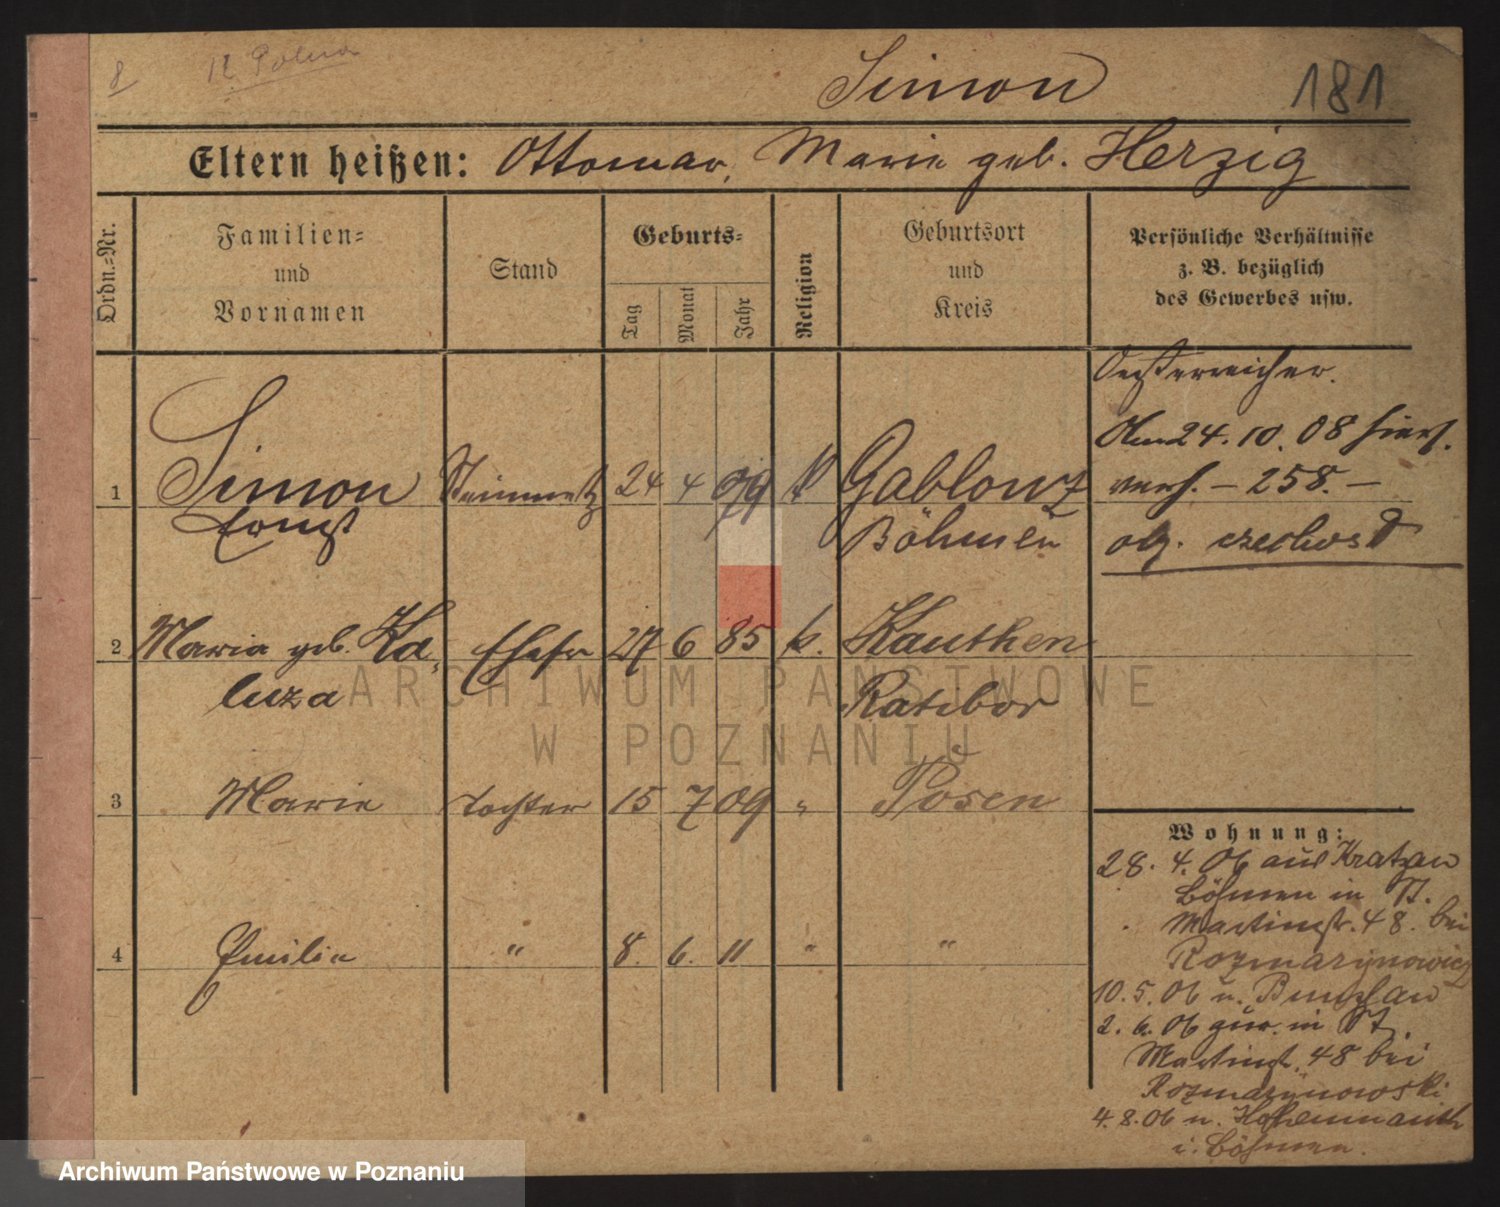 8
181
Simon
Eltern heißen: Ottomar, Marie geb. Herzig
Ordn.-Nr.
Familien-
und
Vornamen
Stand
Geburts-
Tag
Monat
Jahr
Religion
Geburtsort
und
Kreis
Persönliche Verhältnisse
z. B. bezüglich
des Gewerbes usw.
Oesterreicher.
Am 24. 10. 08 hier
verh. – 258. –
1 Simon Steinmetz 24 4 79 k Gablonz
Ernst Böhmen
ob. czechosł
2 Maria geb. Ka- Ehefr 27 6 85 k. Kauthen
luza Ratibor
3 Marie Tochter 15 7 09 " Posen
4 Emilie " 8. 6. 11 " "
Wohnung:
28. 4. 06 aus Kratzau
Böhmen in St.
Martinstr. 48. bei
Rozmarynowicz
10. 5. 06 n. Bunzlau
2. 6. 06 zur. in St.
Martinst. 48 bei
Rozmarynowski
4. 8. 06 n. Hohenmauth
i. Böhmen.
ARCHIWUM PAŃSTWOWE
W POZNANIU
Archiwum Państwowe w Poznaniu